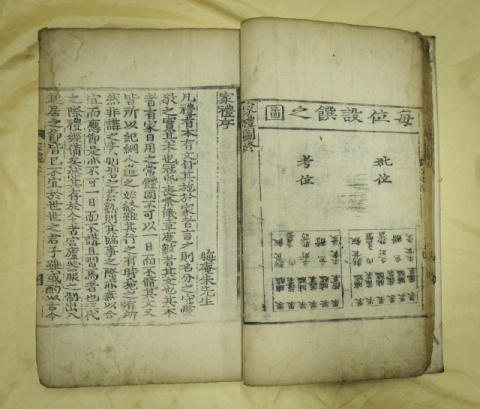 每位設饌之圖
妣位
考位
家禮圖終
家禮序
晦庵朱先生
凡禮有本有文自其施於家者言之則名分之守愛
敬之實其本也冠昏喪祭儀章度數者其文也其本
者有家日用之常體固不可以一日而不脩其文又
皆所以紀綱人道之始終雖其行之有時施之有所
然非講之素明習之素熟則其臨事之際亦無以合
宜而應節是亦不可一日而不講且習焉者也三代
之際禮經備矣然其存於今者宮廬器服之制出入
起居之節皆已不宜於世世之君子雖或酌以古今